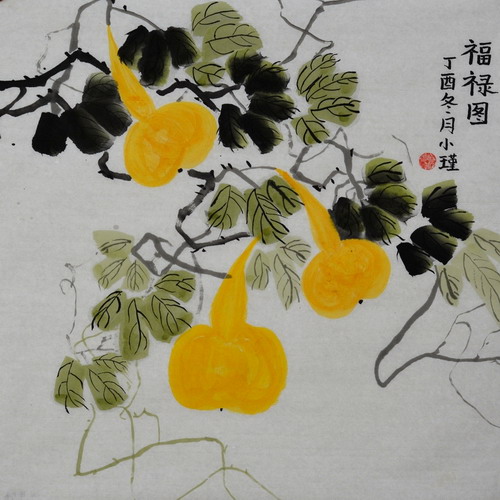 福禄图
丁酉冬月小瑾